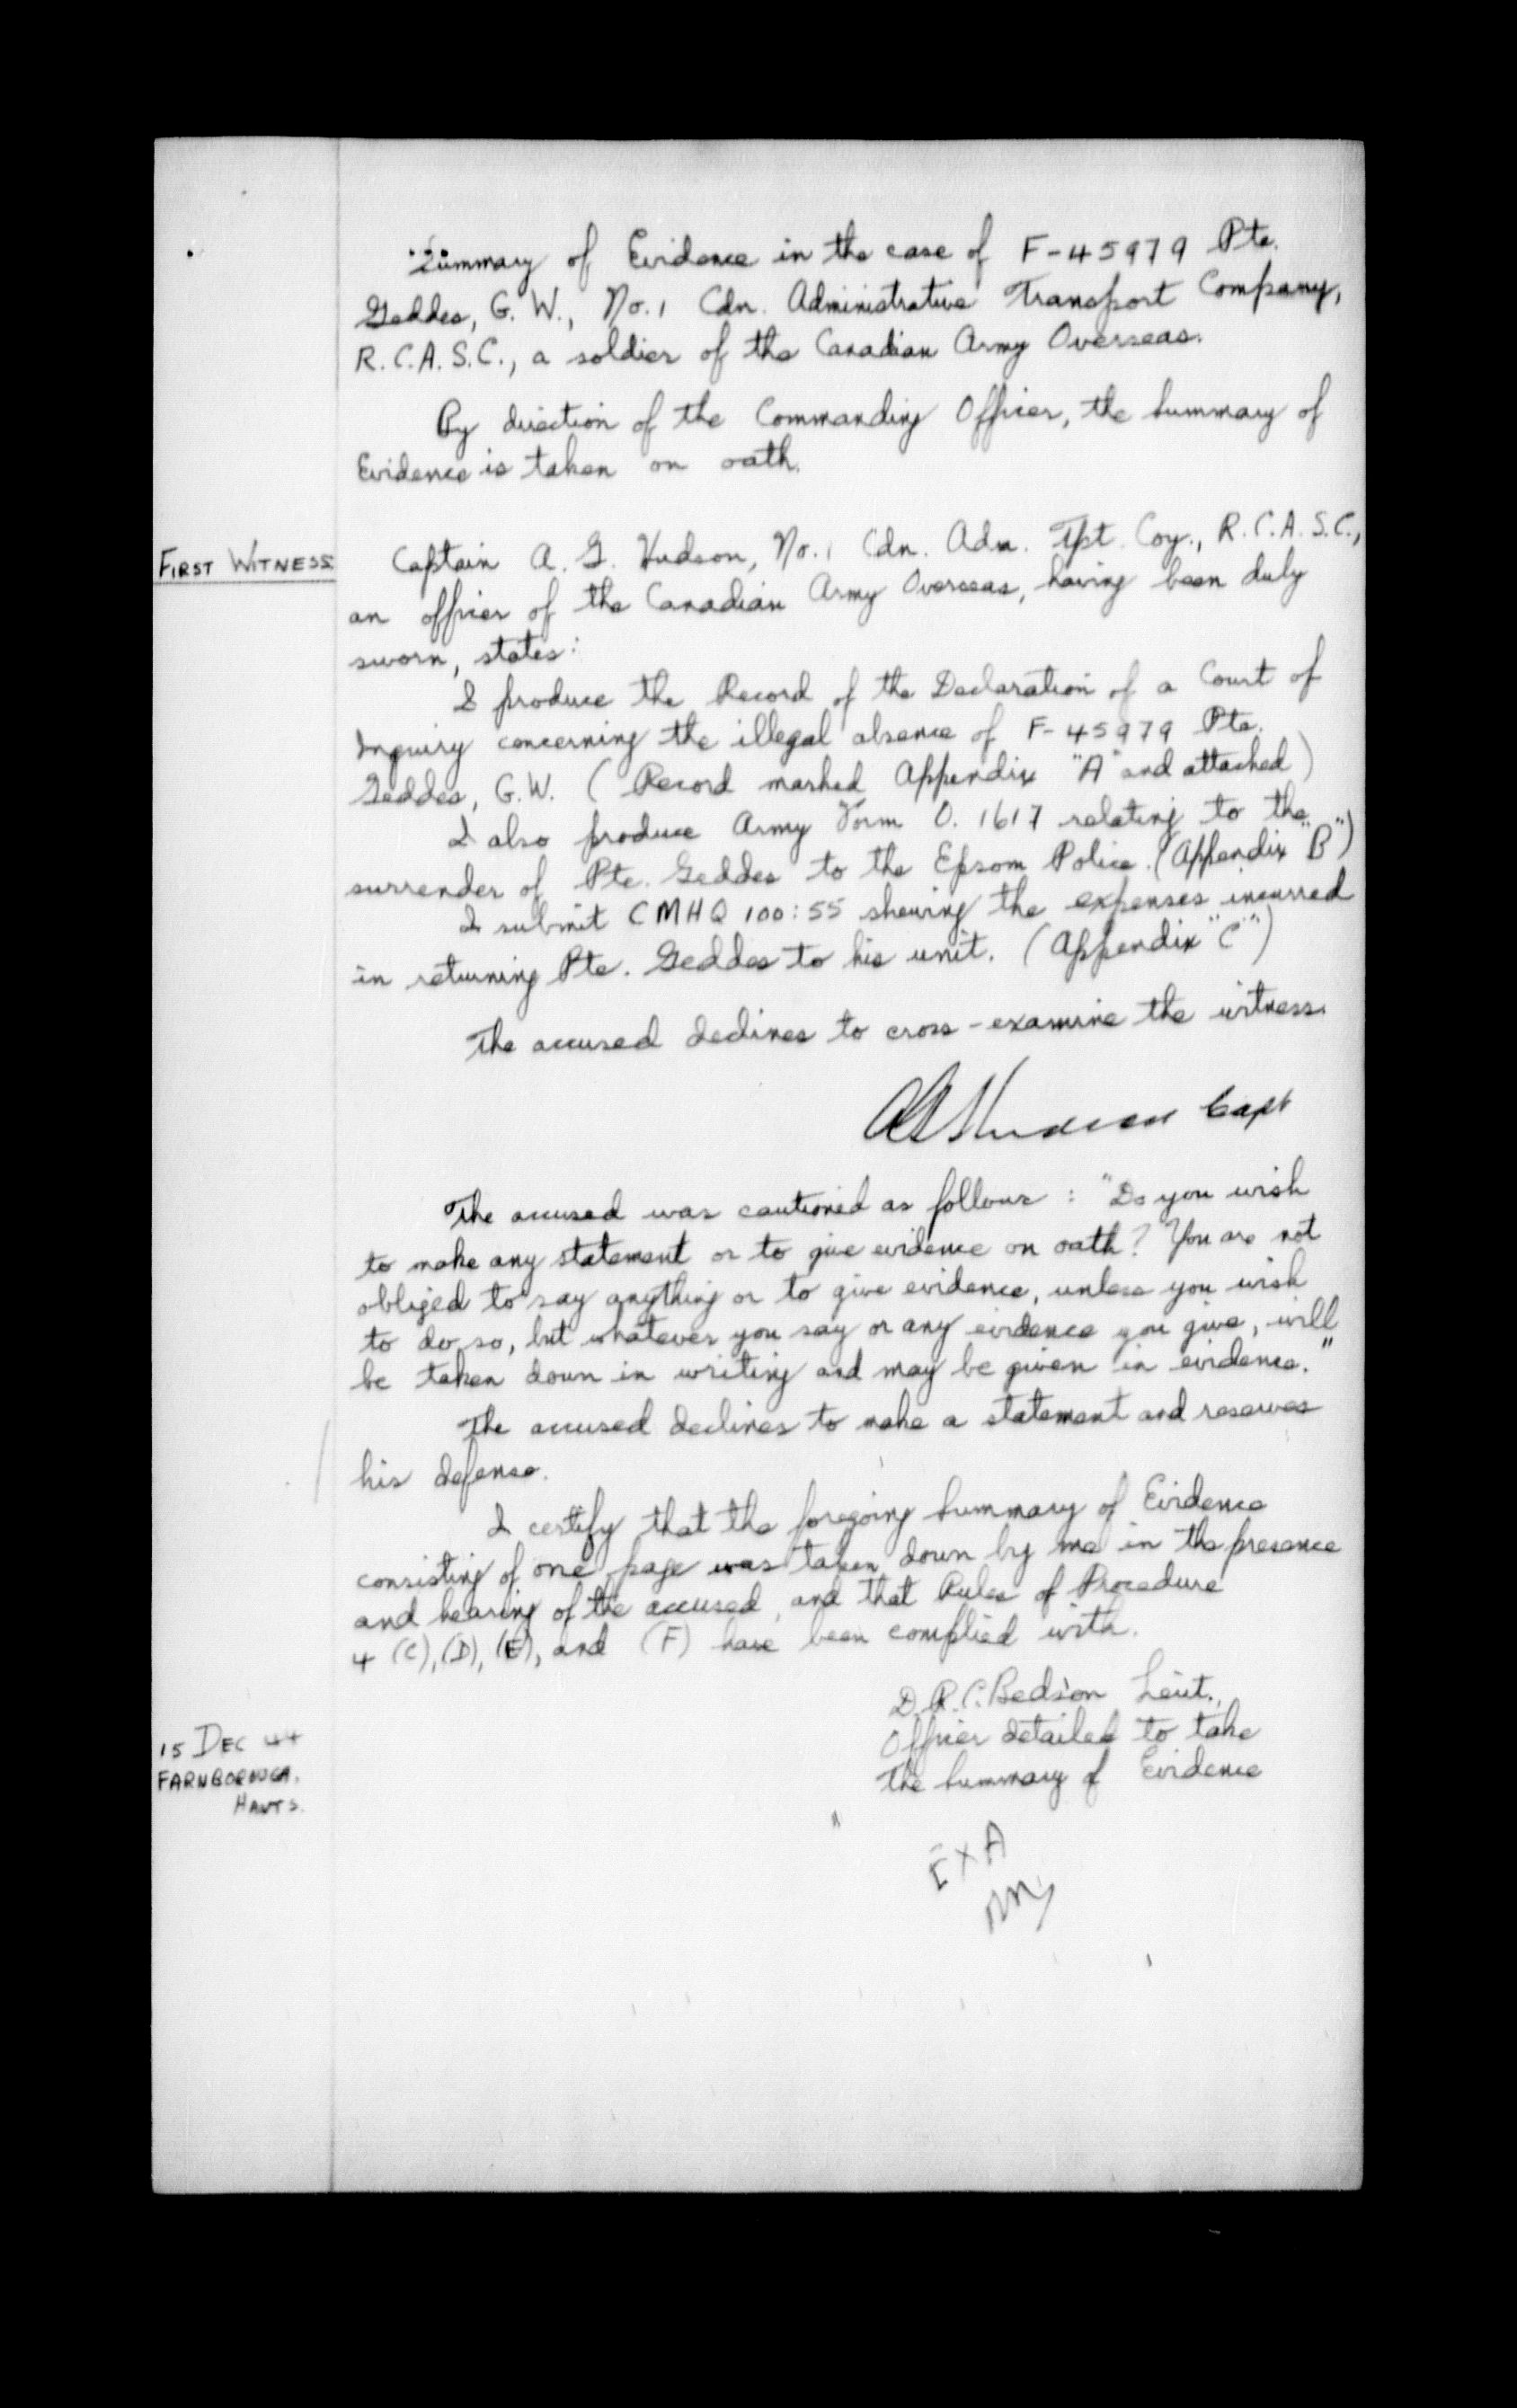 Summary of Evidence in the case of F-45979 Pte.
Geddes, G. W., No. 1 Cdn. Administrative Transport Company,
R.C.A.S.C., a soldier of the Canadian Army Overseas.
By direction of the Commanding Officer, the Summary of
Evidence is taken on oath.
FIRST WITNESS
Captain A. G. Hudson, No. 1 Cdn. Adm. Tpt. Coy., R.C.A.S.C.,
an officer of the Canadian Army Overseas, having been duly
sworn, states:
I produce the Record of the Declaration of a Court of
Inquiry concerning the illegal absence of F-45979 Pte.
Geddes, G.W. (Record marked Appendix "A" and attached)
I also produce Army Form O. 1617 relating to the
surrender of Pte. Geddes to the Epsom Police. (Appendix "B")
I submit CMHQ 100:55 shewing the expenses incurred
in returning Pte. Geddes to his unit. (Appendix "C")
The accused declines to cross-examine the witness.
AG Hudson Capt
The accused was cautioned as follows: "Do you wish
to make any statement or to give evidence on oath? You are not
obliged to say anything or to give evidence, unless you wish
to do so, but whatever you say or any evidence you give, will
be taken down in writing and may be given in evidence."
The accused declines to make a statement and reserves
his defense.
I certify that the foregoing Summary of Evidence
consisting of one page was taken down by me in the presence
and hearing of the accused, and that Rules of Procedure
4 (C), (D), (E), and (F) have been complied with.
D.R.C. Bedson Lieut.,
Officer detailed to take
the Summary of Evidence
15 DEC 44
FARNBOROUGH,
HANTS.
EX A